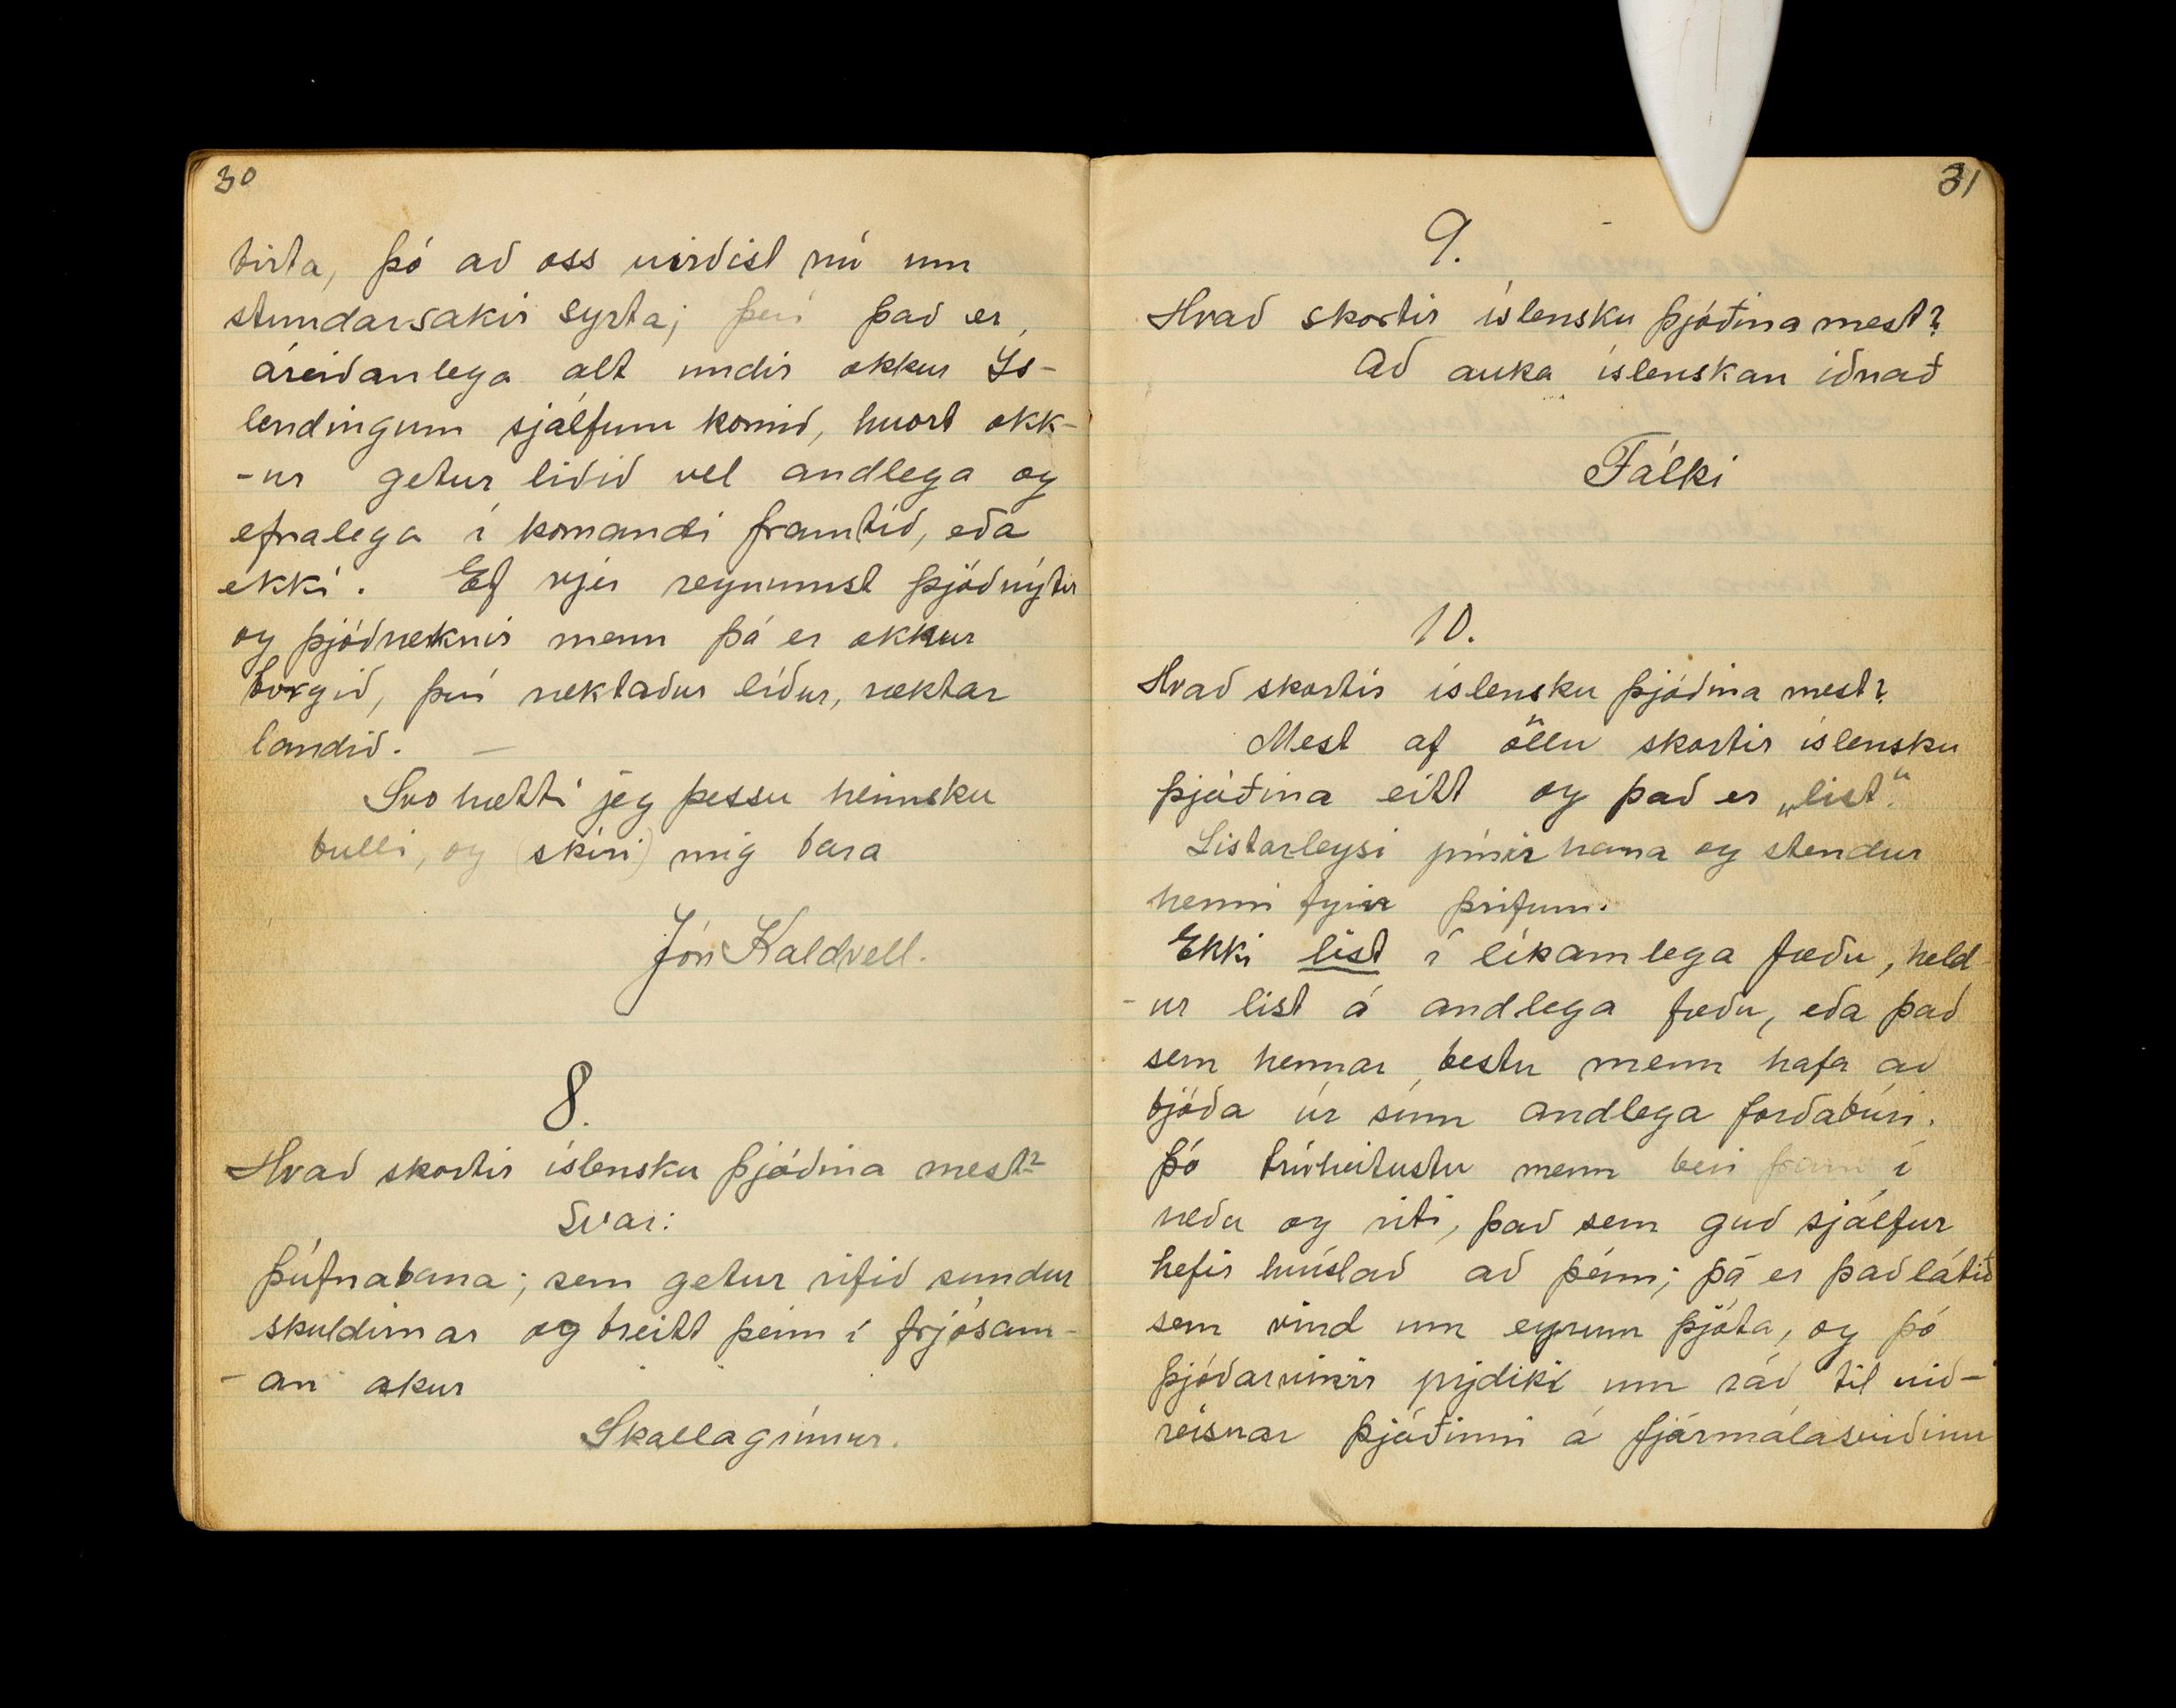 30
birta, þó að oss virðist nú um
stundarsakir syrta; því það er
áreiðanlega alt undir okkur Ís-
lendingum sjálfum komið, hvort okk-
-ur getur liðið vel andlega og
efnalega í komandi framtíð, eða
ekki. Ef vjer reynumst þjóðnýtir
og þjóðræknir menn þá er okkur
borgið, því ræktaður líður, ræktar
landið. —
Svo hætti jeg þessu heimsku
bulli, og (skíri) mig bara
Jón Kaldvell.
8.
Hvað skortir íslensku þjóðina mest?
Svar:
Þúfnabana; sem getur rifið sundur
skuldirnar og breitt þeim í frjósam-
-an akur
Skallagrímur.
31
9.
Hvað skortir íslensku þjóðina mest?
Að auka íslenskan iðnað
Fálki
10.
Hvað skortir íslensku þjóðina mest?
Mest af öllu skortir íslensku
þjóðina eitt og það er „list“.
Listarleysi pínir hana og stendur
henni fyrir þrifum.
Ekki list í líkamlega fæðu, held
-ur list á andlega fæðu, eða það
sem hennar bestu menn hafa að
bjóða úr sínu andlega forðabúri.
Þó trúheitustu menn beri fram í
ræðu og riti, það sem guð sjálfur
hefir hvíslað að þeim; þá er það látið
sem vind um eyrum þjóta, og þó
þjóðarvinir prjediki um ráð til við-
reisnar þjóðinni á fjármálasviðinu